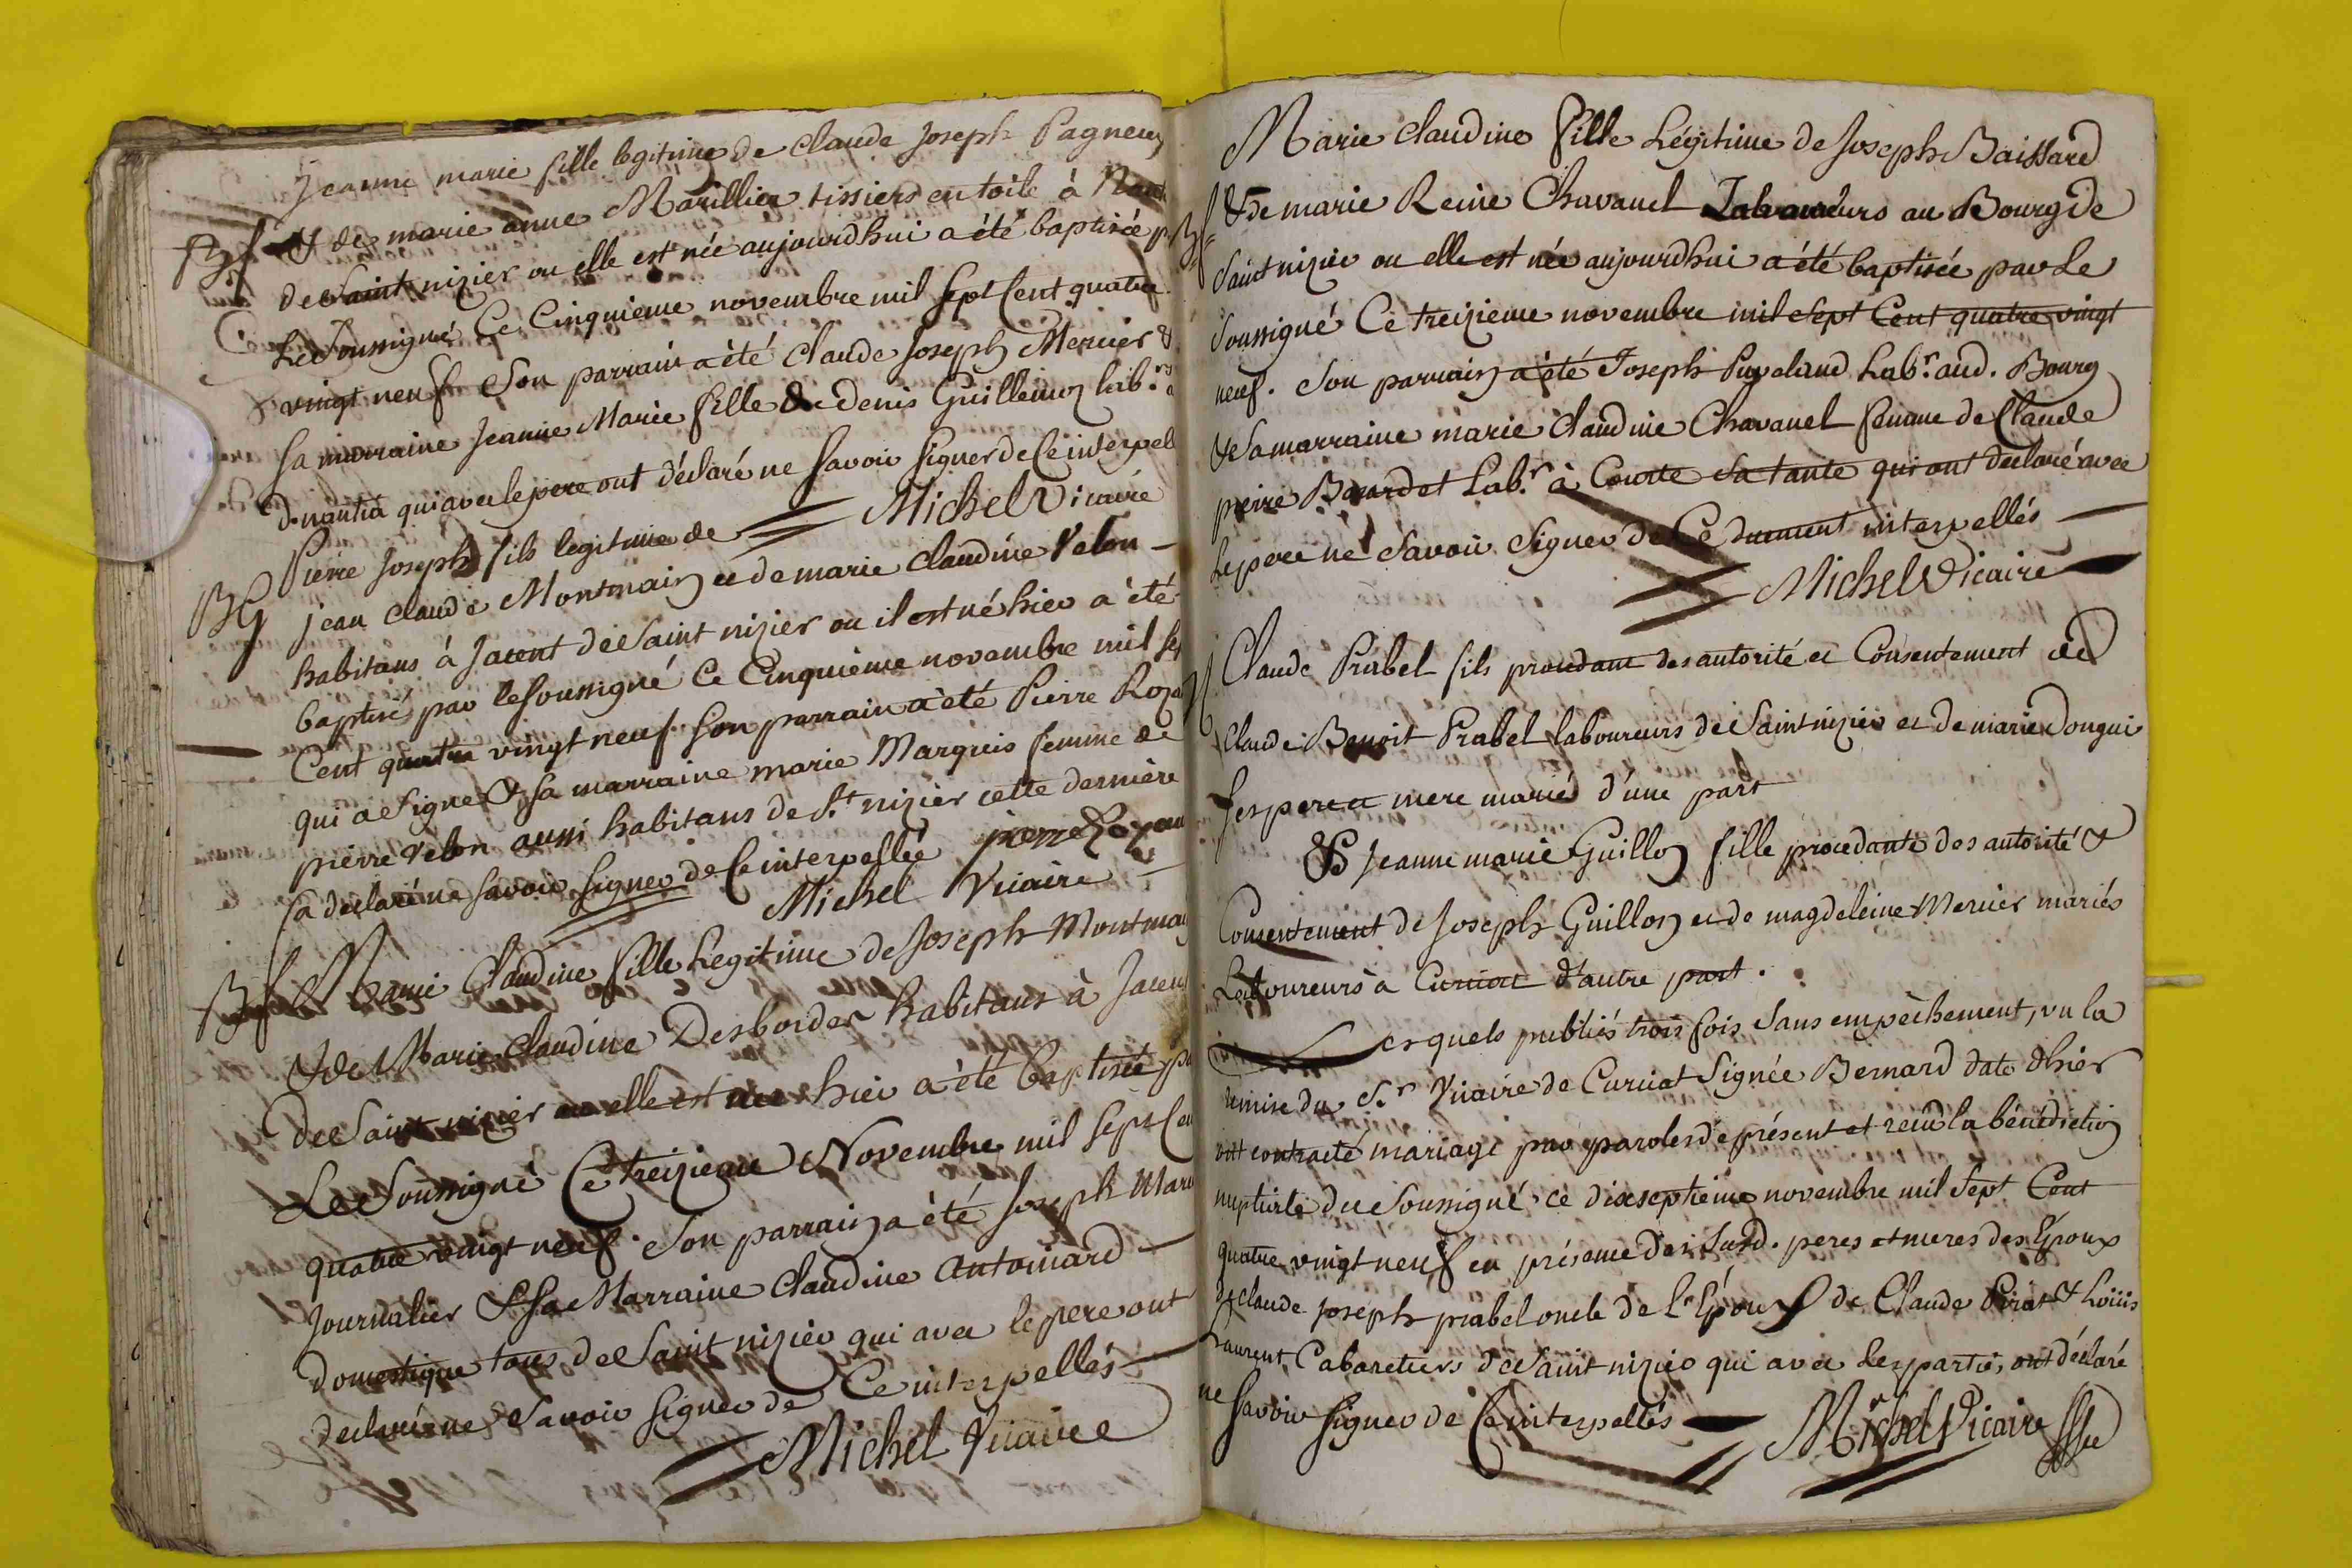 Jeanne marie fille legitime de Claude Joseph Pagneux
Bf & de marie anne Marillier tissiers en toile à
de Saint nizier ou elle est née aujourdhui a été baptisée p
Le Soussigné Ce Cinquieme novembre mil Sept Cent quatre
vingt neuf Son parrain a été Claude Joseph Mercier &
Sa marraine Jeanne Marie fille de denis Guillemoz lab.rs
qui avec le pere ont déclaré ne Savoir Signer de Ce interpel
Michel Vicaire
Pierre Joseph fils legitime de
BG jean claude Montmain et de marie claudine Velon
habitans à Jacent de Saint nizier ou il est né hier a été
baptisé par le Soussigné Ce Cinquième novembre mil Sep
Cent quatre vingt neuf Son parrain a été Pierre Roza
qui a Signé & Sa marraine marie Marquis femme de
pierre Velon aussi habitans de S.t nizier cette dernière
Sa declaré ne Savoir Signer de Ce interpellée pierre
Michel Vicaire
Bf Marie Claudine fille Legitime de Joseph Montmain
& de Marie Claudine Desbordes habitans à Jacent
de Saint nizier ou elle est née hier a été baptisée pa
Le Soussigné Ce treizieme Novembre mil Sept Cen
quatre vingt neuf. Son parrain a été Joseph
Journalier & Sa Marraine Claudine Antoinard
domestique tous de Saint nizier qui avec le pere ont
declaré ne Savoir Signer de Ce interpellés
Michel Vicaire
Marie Claudine fille Légitime de Joseph Baissard
Bf & de marie Reine Chavanel Laboureurs au Bourg de
Saint nizier ou elle est née aujourdhui a été baptisée par Le
Soussigné Ce treizieme novembre mil Sept Cent quatre vingt
neuf. Son parrain a été Joseph Puveland Lab.r aud. Bourg
& Sa marraine marie Claudine Chavanel femme de Claude
pierre Lab.r à Courte Sa tante qui ont declaré avec
le pere ne Savoir Signer de Ce duement interpellés
Michel Vicaire
M Claude Prabel fils procedant des autorité et Consentement de
Claude Benoit Prabel laboureurs de Saint nizier et de marie Donguis
Ses pere et mere mariés d'une part
& Jeanne marie Guillon fille procedante des autorité &
Consentement de Joseph Guillon et de magdeleine Mercier mariés
Laboureurs à Curciat d'autre part.
Lesquels publiés trois fois Sans empêchement, vu la
remise du S.r Vicaire de Curciat Signée Bernard date d'hier
ont contracté mariage par paroles de présent et reçu la bénédiction
nuptiale du Soussigné ce dixseptieme novembre mil Sept Cent
quatre vingt neuf en présence des Susd. peres et meres des Epoux
de claude joseph prabel oncle de l'Epoux de Claude Pirat & Louis
Laurent Cabaretiers de Saint nizier qui avec les parties ont déclaré
ne Savoir Signer de Ce interpellés
Michel Vicaire